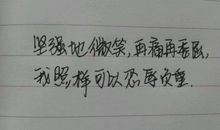 坚强地微笑,再痛再委屈,
我照样可以忍辱负重.